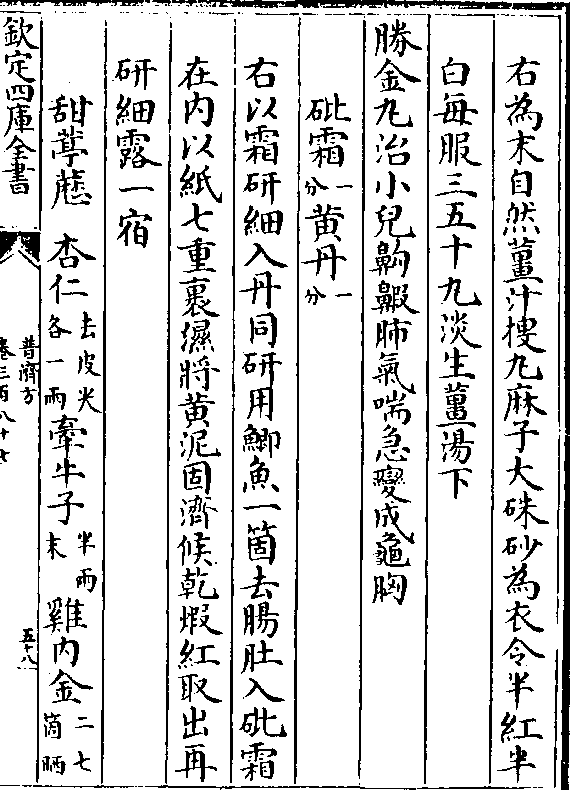 右為末自然薑汁搜丸麻子大硃砂為衣令半紅半
白每服三五十丸淡生薑湯下
勝金丸治小兒齁䶎肺氣喘急變成龜胸
砒霜一分 黄丹一分
右以霜研細入丹同研用鯽魚一箇去腸肚入砒霜
在内以紙七重裹濕將黄泥固濟候乾煆紅取出再
研細露一宿
甜葶藶 杏仁去皮尖各一兩 牽牛子半兩末 雞内金二七箇晒
欽定四庫全書
普濟方
卷三百八十七
五十八